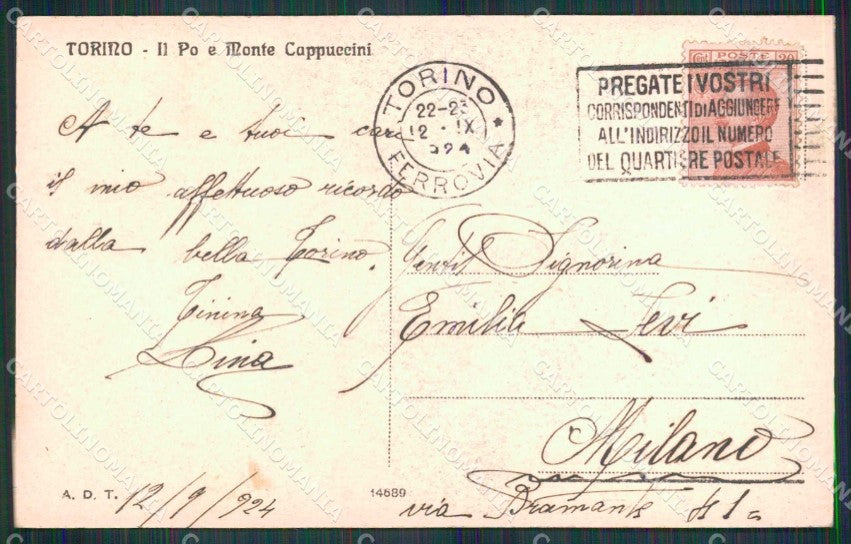 TORINO - Il Po e Monte Cappuccini
TORINO
22-23
12 · IX
924
FERROVIA
*
POSTE
20
PREGATE I VOSTRI
CORRISPONDENTI DI AGGIUNGERE
ALL'INDIRIZZO IL NUMERO
DEL QUARTIERE POSTALE
A te e tuoi cari
il mio affettuoso ricordo
dalla bella Torino.
Tinina
Lina
Gentil Signorina
Emilia Levi
Milano
via Bramante
A. D. T.
12/9/924
14689
CARTOLINOMANIA